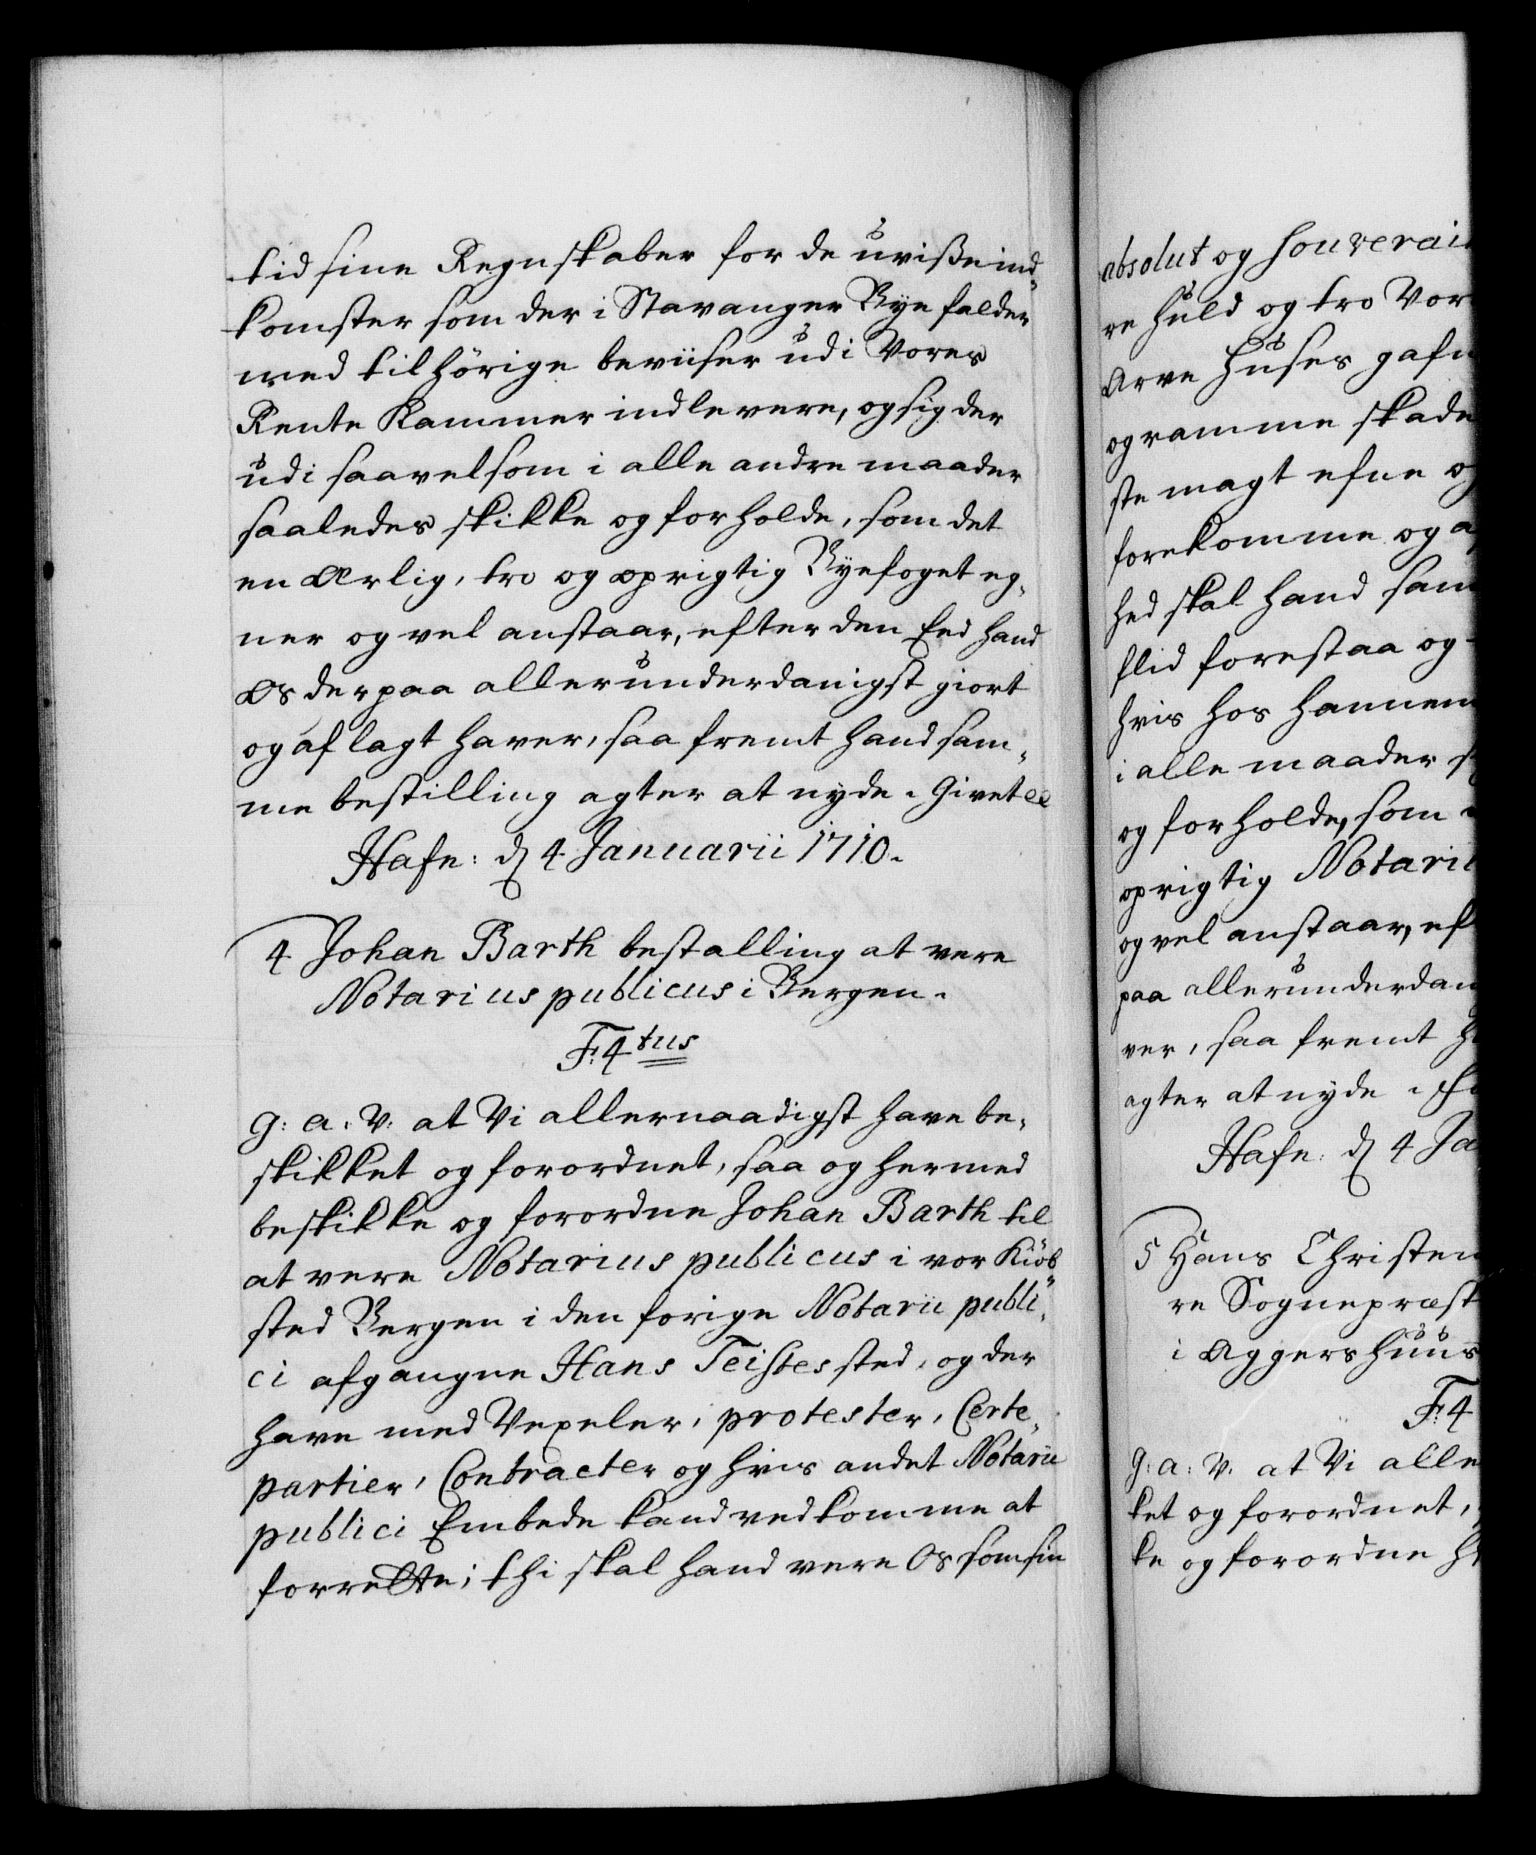 tid sine Regnskaber for de uviße ind-
komster som der i Stavanger Bye falder
med tilhörige beviiser udi Vores
Rente Kammer indlevere, og sig der
udi saavelsom i alle andre maader
saaledes skikke og forholde, som det
en ærlig, tro og oprigtig Byefoget eg-
ner og vel anstaar, efter den Eed hand
Os derpaa allerunderdanigst giort
og aflagt haver, saa fremt hand sam-
me bestilling agter at nyde. Givet ec
Hafn: d 4 Januarii 1710.
4 Johan Barth bestalling at vere
Notarius publicus i Bergen.
F: 4tus
G: a: V: at Vi allernaadigst have be-
skikket og forordnet, saa og hermed
beskikke og forordne Johan Barth til
at vere Notarius publicus i vor Kiöb-
sted Bergen i den forige Notarii publi-
ci afgangne Hans Teistes sted, og der
have med Vexeler, protester, Certe-
partier, Contracter og hvis andet Notarii
publici Embede kand vedkomme at
forrette; thi skal hand vere Os som sin
absolut og souverai
re huld og tro Vor
Arve Huses gafn
og ramme skade
ste magt efne og
forekomme og a
hed skal hand sam
flid forestaa og
hvis hos hannem
i alle maader s
og forholde, som
oprigtig Notarii
og vel anstaar, ef
paa allerunderdan
ver, saa fremt h
agter at nyde.
Hafn: d 4 Ja
5 Hans Christen
re Sognepræst
i Aggershuus
F: 4
G: a: V: at Vi alle
ket og forordnet,
ke og forordne H